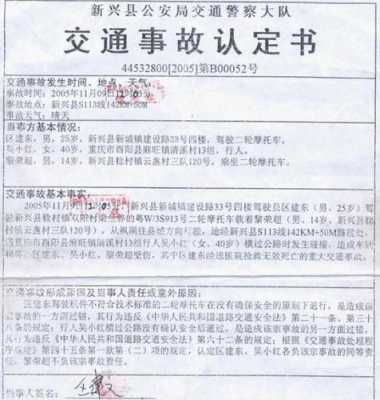 新兴县公安局交通警察大队
交通事故认定书
44532800[2005]第B00052号
交通事故发生时间、地点、天气:
事故时间:2005年11月09日
事故地点:新兴县S113线142KM+50M
事故天气:晴天
当事方基本情况:
区建东,男,25岁,新兴县新城镇建设路33号四楼,驾驶二轮摩托车。
吴小红,女,40岁,重庆市酉阳县麻旺镇清溪村13组,行人。
黎荣超,男,14岁,新兴县稔村镇云莲村三队120号,乘坐二轮摩托车。
交通事故基本事实:
2005年11月 新兴县新城镇建设路33号四楼驾驶员区建东(男,25岁)驾
驶新兴县稔村镇 的粤W/3S913号二轮摩托车载着黎荣超(男,14岁,新兴县稔
村镇云莲村三队120号),从枫洞往县城方向 ,途经新兴县S113线142KM+50M路段处,
重庆市酉阳县麻旺镇清溪村13组行人吴小红(女,40岁)横过公路时发生碰撞,造成车辆
损坏,区建东、吴小红、黎荣超受伤,其中区建东经送医院抢救无效死亡的重大交通事故。
交通事故形成原因及当事人责任或意外原因:
区建东驾驶机件不符合技术标准的二轮摩托车在没有确保安全的原则下通行,是造成该
事故的一方面过错,其行为违反《中华人民共和国道路交通安全法》第二十一条、第三十
八条的规定;行人吴小红横过公路没有确认安全后通过,是造成该事故的另一方面过错,
其行为违反《中华人民共和国道路交通安全法》第六十二条的规定;根据《交通事故处理程
序规定》第四十五条第一款第(二)项的规定,认定区建东、吴小红各负该宗事故的同等责
任,黎荣超不负该宗事故责任。
当事人签名: